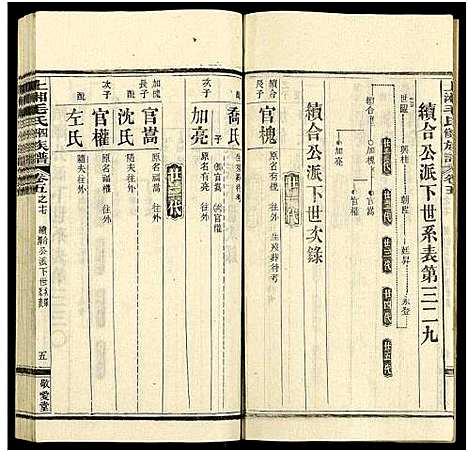 上湘毛氏修族譜 卷五
續合公派下世系表第三二九
世躍 興桂 朝陞 廷昇 永登
官槐
官嵩
官權
加亮
廿一代 廿二代 廿三代 廿四代 廿五代
續合公派下世次錄
續合長子 官槐 原名有槐 生歿葬待考
配 喬氏 生歿葬待考
子二 官嵩 官權
次子 加亮 原名有亮 往外
廿二代
加槐長子 官嵩 原名嵩 往外
配 沈氏 隨夫往外
次子 官權 原名權 往外
配 左氏 隨夫往外
上湘毛氏四修族譜 卷五之十七 續合公派下世次錄 五 敬愛堂